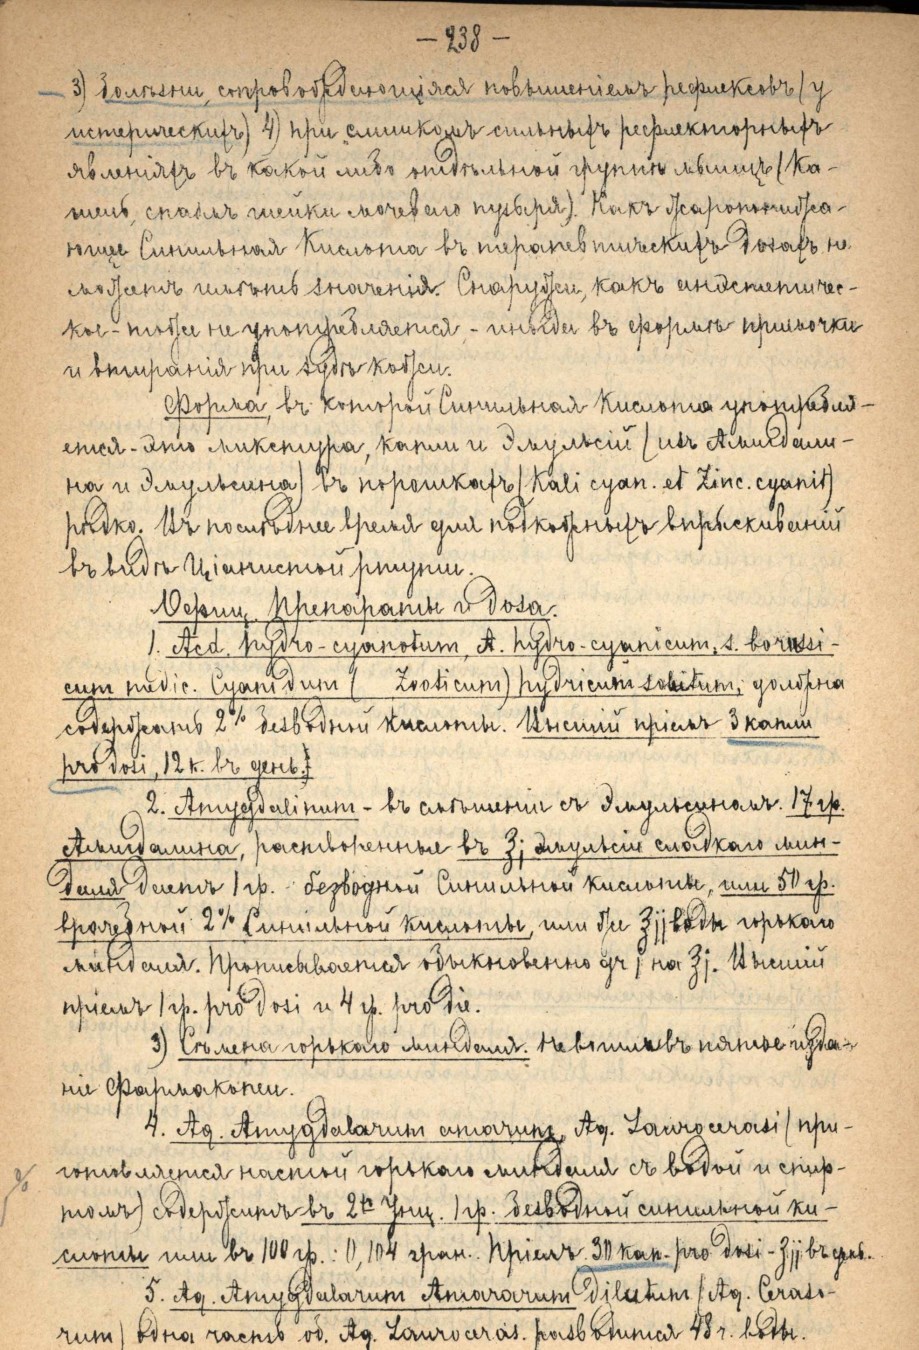 — 238 —
3) Болѣзни, сопровождающіяся повышеніемъ рефлексовъ (у
истерическихъ) 4) при слишкомъ сильныхъ рефлекторныхъ
явленіяхъ въ какой либо отдѣльной группѣ мышцъ (Ка-
шель, спазмъ шейки мочевого пузыря). Какъ жаропонижа-
ющее Синильная Кислота въ терапевтическихъ дозахъ не
можетъ имѣть значенія. Снаружи, какъ анэстетичес-
кое - тоже не употребляется - иногда въ формѣ примочки
и втиранія при зудѣ кожи.
Форма, въ которой Синильная Кислота употребля-
ется - это микстура, капли и Эмульсій (изъ Амигдали-
на и Эмульсина) въ порошкахъ (Kali cyan. et Zinc. cyanit)
рѣдко. Въ послѣднее время для подкожныхъ впрыскиваній
въ видѣ Ціанистой ртути.
Офиц. Препараты и доза.
1. Acd. hydro-cyanotum, A. hydro-cyanicum, s. borussi-
cum medic. Cyanidum ( Zooticum) hydricum solutum; должна
содержать 2% безводной кислоты. Высшій пріемъ 3 капли
pro dosi, 12 к. въ день.}
2. Amygdalinum - въ смѣшеніи съ Эмульсиномъ. 17 гр.
Амигдалина, растворенные въ ʒj эмульсіи сладкаго мин-
даля даетъ 1 гр. безводной Синильной кислоты, или 50 гр.
врачебной 2% Синильной кислоты, или же ʒjj воды горькаго
миндаля. Прописывается обыкновенно gr j на ʒj. Высшій
пріемъ 1 гр. pro dosi и 4 гр. pro die.
3) Сѣмена горькаго миндаля. Не вошли въ пятое изда-
ніе Фармакопеи.
4. Aq. Amygdalarum amarum, Aq. Laurocerasi (при-
готовляется настой горькаго миндаля съ водой и спир-
томъ) содержитъ въ 2хъ Унц. 1 гр. безводной синильной ки-
слоты или въ 100 гр. : 0,104 гран. Пріемъ 30 кап. pro dosi - ʒjj въ день.
5. Aq. Amygdalarum Amararum Dilutum (Aq. Ceraso-
rum) одна часть об. Aq. Lauroceras. разводится 48 ч. воды.